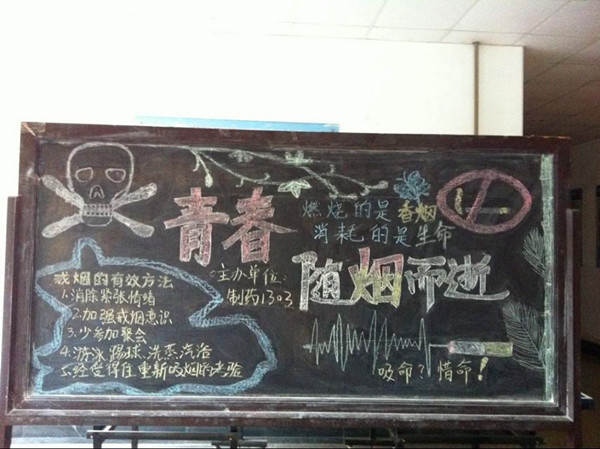 青春
燃烧的是香烟
消耗的是生命
随烟而逝
主办单位:
制药1303
戒烟的有效方法
1.消除紧张情绪
2.加强戒烟意识
3.少参加聚会
4.游泳 踢球 洗蒸汽浴
5.经受得住重新吸烟的考验
吸命?! 惜命!